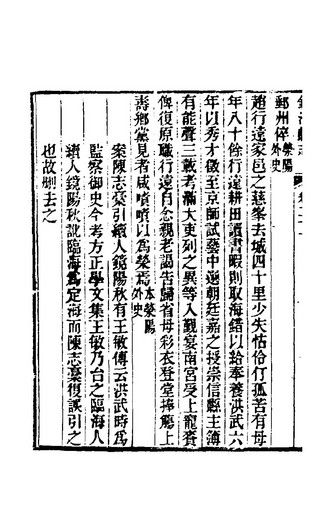 郵州倅滎陽外史
趙行遠家邑之慈峯去城四十里少失怙伶仃孤苦有母
年八十餘行遠耕田讀書暇則取海錯以給奉養洪武六
年以秀才徵至京師試藝中選朝廷嘉之授崇信縣主簿
有能聲三載考滿大吏列之異等入覲宴南宮受上寵賚
俾復原職行遠自念親老謁告歸省母彩衣登堂捧觴上
壽鄉黨見者咸嘖嘖以為榮焉本滎陽外史
案陳志稾引續人鏡陽秋有王敏傳云洪武時為
監察御史今考方正學文集王敏乃台之臨海人
續人鏡陽秋訛臨海為定海而陳志稾復誤引之
也故刪去之